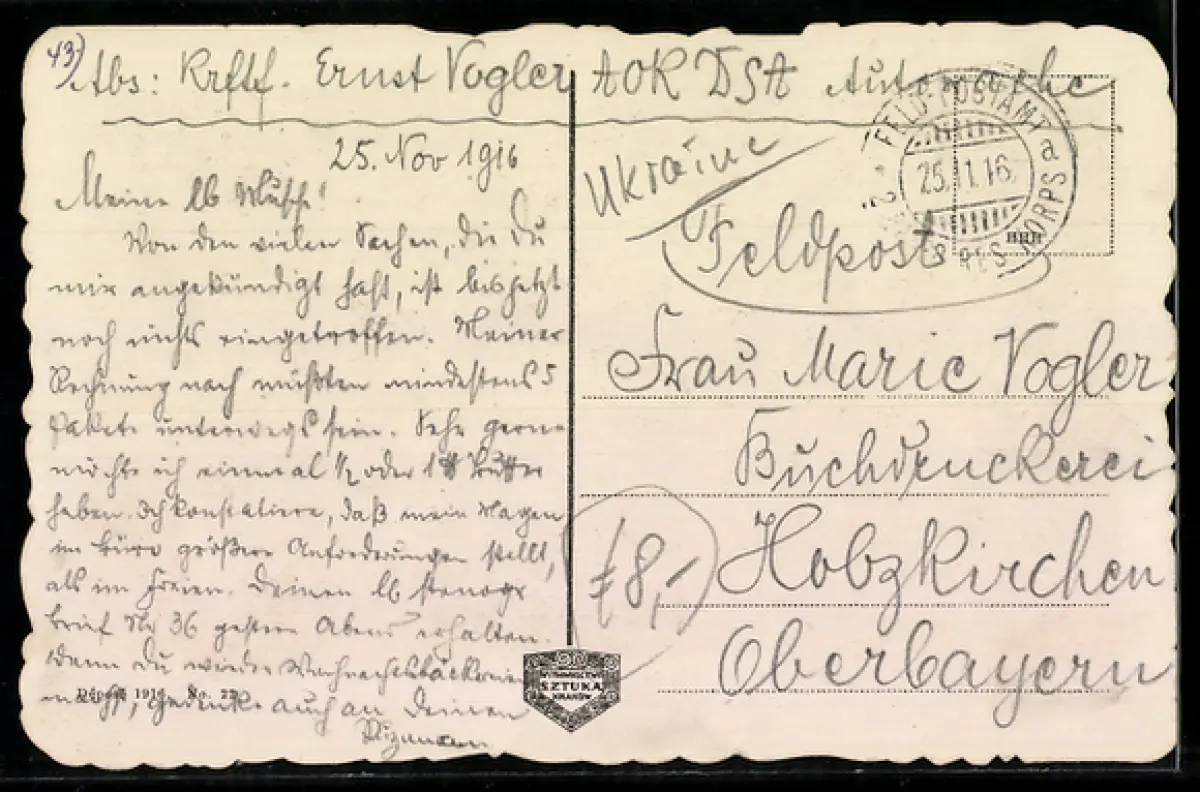 43)
Abs: Krftf. Ernst Vogler AOK DSA Auto
25. Nov 1916
Meine lb
Von den vielen Sachen, die Du
mir angekündigt hast, ist bis jetzt
noch nichts eingetroffen. Meiner
Rechnung nach müßten mindestens 5
Pakete unterwegs sein. Sehr gerne
möchte ich einmal ½ oder 1 ℔ Butter
haben. Ich konstatiere, daß mein Magen
im Büro größere Anforderungen stellt,
als im Freien. Deinen lb stenogr
brief Nr 36 gestern Abend erhalten.
Wenn Du wieder Weihnachtsbäckereien
machst, gedenke auch an Deinen
Ukraine
Feldpost
FELD-POSTAMT a
25.11.16.
KORPS
Frau Marie Vogler
Buchdruckerei
Holzkirchen
Oberbayern
8,-
Dépose 1916. No. 22
SZTUKA
KRAKÓW